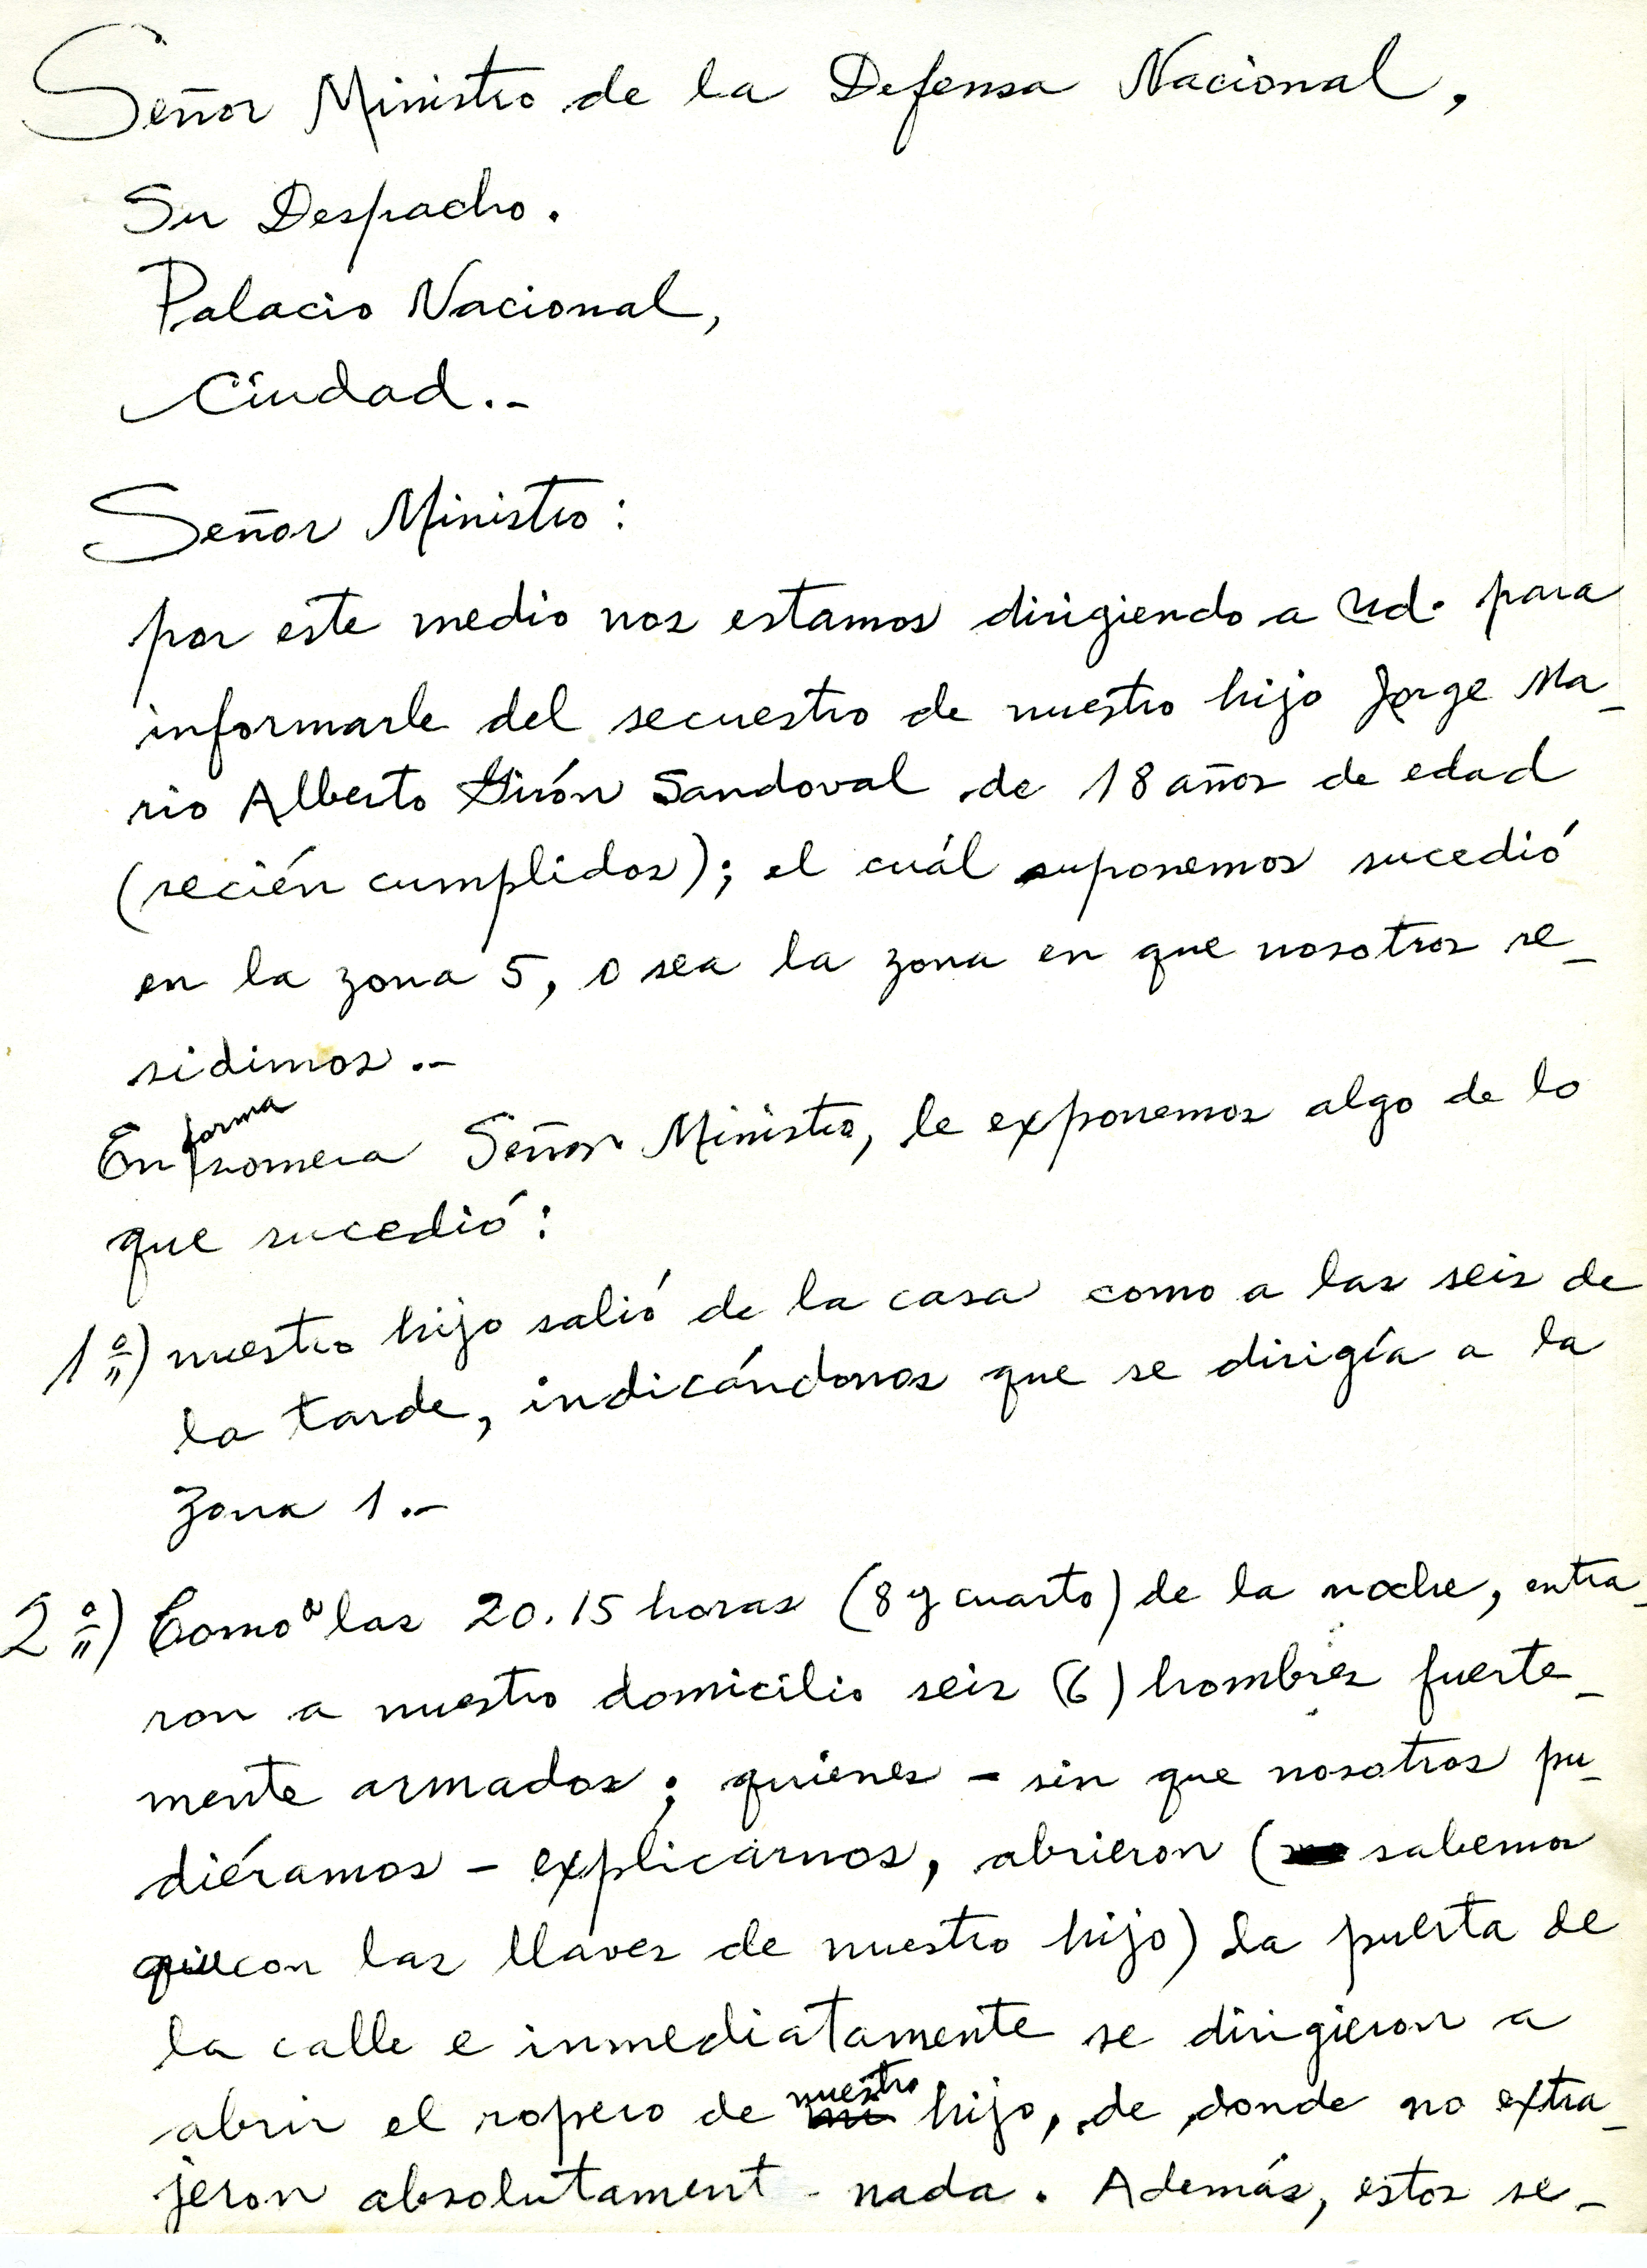 Señor Ministro de la Defensa Nacional,
Su Despacho.
Palacio Nacional,
Ciudad.-
Señor Ministro:
por este medio nos estamos dirigiendo a Ud. para
informarle del secuestro de nuestro hijo Jorge Ma-
rio Alberto Girón Sandoval de 18 años de edad
(recién cumplidos); el cuál suponemos sucedió
en la zona 5, o sea la zona en que nosotros re-
sidimos.-
En forma somera Señor Ministro, le exponemos algo de lo
que sucedió:
1º) nuestro hijo salió de la casa como a las seis de
la tarde, indicándonos que se dirigía a la
zona 1.-
2º) Como a las 20.15 horas (8 y cuarto) de la noche, entra-
ron a nuestro domicilio seis (6) hombres fuerte-
mente armados; quienes - sin que nosotros pu-
diéramos - explicarnos, abrieron (sabemos
que con las llaves de nuestro hijo) la puerta de
la calle e inmediatamente se dirigieron a
abrir el ropero de nuestro hijo, de donde no extra-
jeron absolutament- nada. Además, estos se-